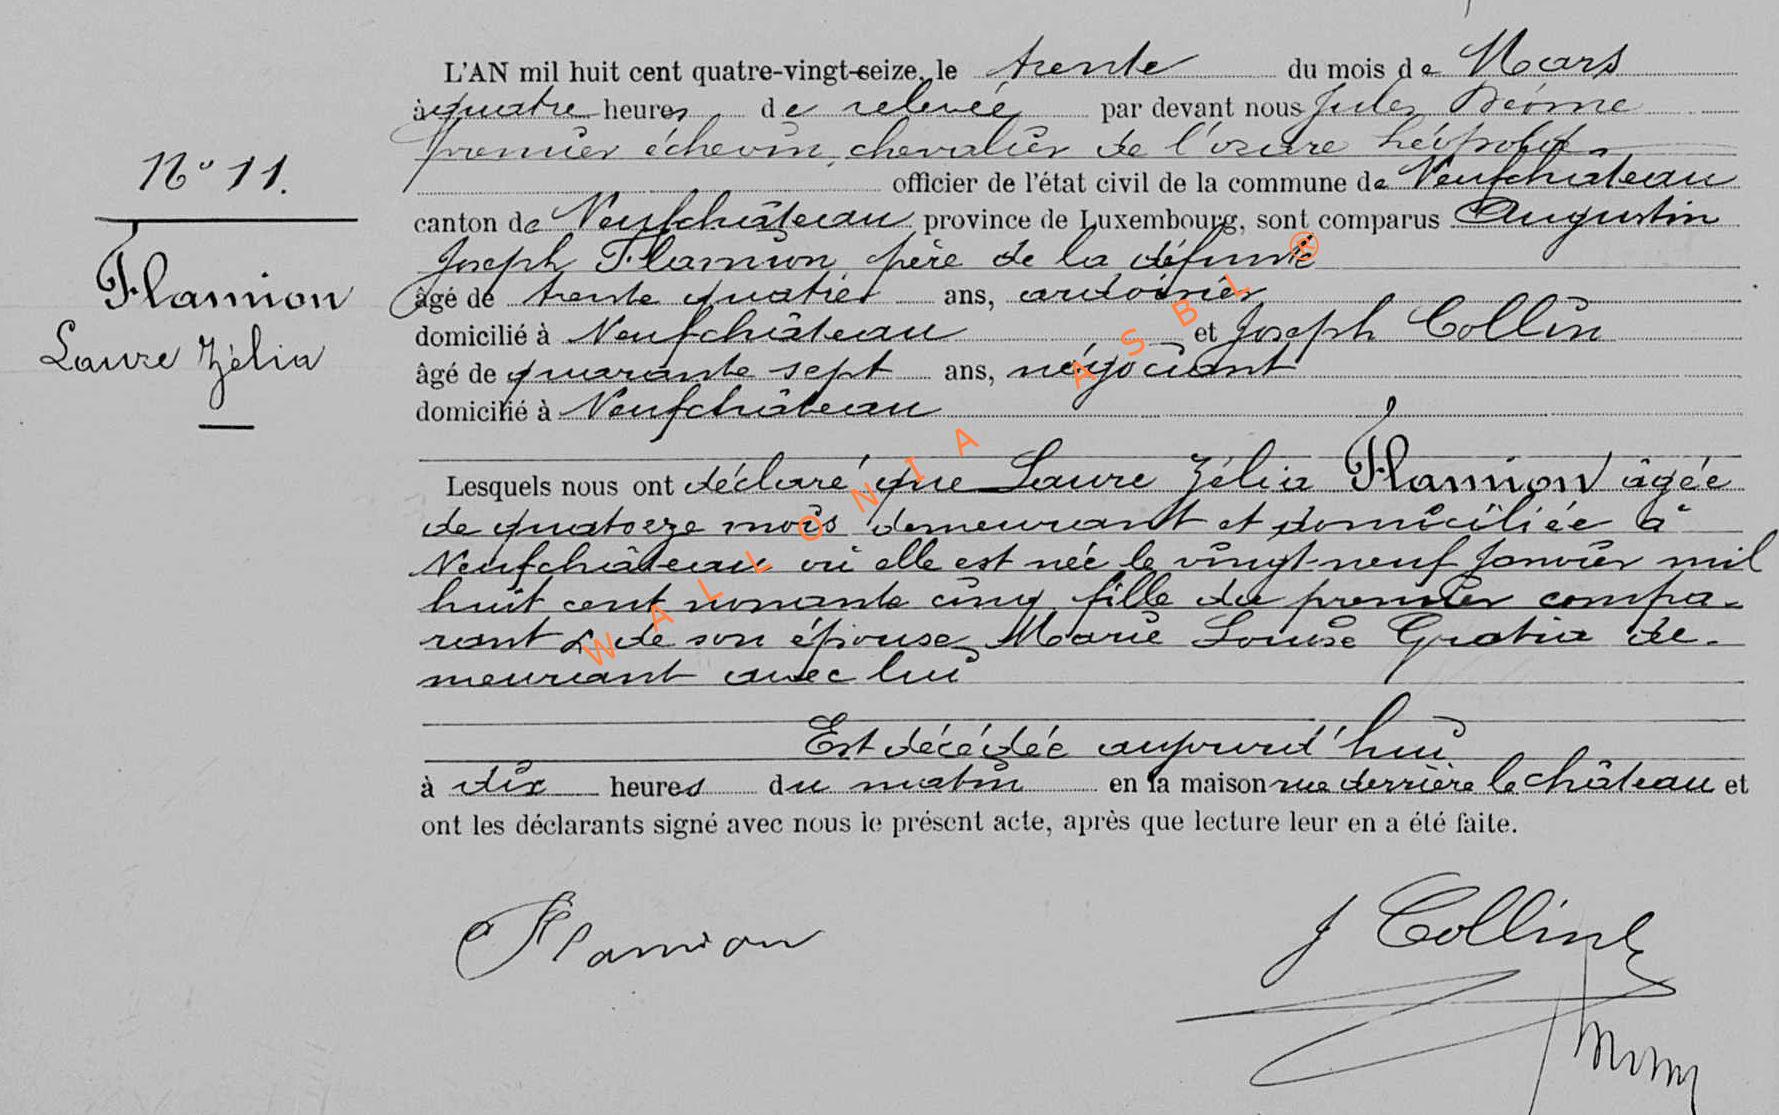 L'AN mil huit cent quatre-vingt-seize, le trente du mois de Mars
à quatre heures de relevée par devant nous Jules
premier échevin, chevalier de l'ordre Léopold
N° 11.
officier de l'état civil de la commune de Neufchateau
canton de Neufchâteau province de Luxembourg, sont comparus Augustin
Joseph Flamion, père de la défunte
Flamion
âgé de trente quatre ans, ardoisier
domicilié à Neufchâteau et Joseph Collin
Laure Zélia
âgé de quarante sept ans, négociant
domicilié à Neufchâteau
Lesquels nous ont déclaré que Laure Zélia Flamion âgée
de quatorze mois demeurant et domiciliée à
Neufchâteau où elle est née le vingt-neuf Janvier mil
huit cent nonante cinq fille du premier compa-
rant & de son épouse Marie Louise Gratia de-
meurant avec lui
Est décédée aujourd'hui
à dix heures du matin en la maison rue derrière le château et
ont les déclarants signé avec nous le présent acte, après que lecture leur en a été faite.
Flamion
J Collin
WALLONIA ASBL ®